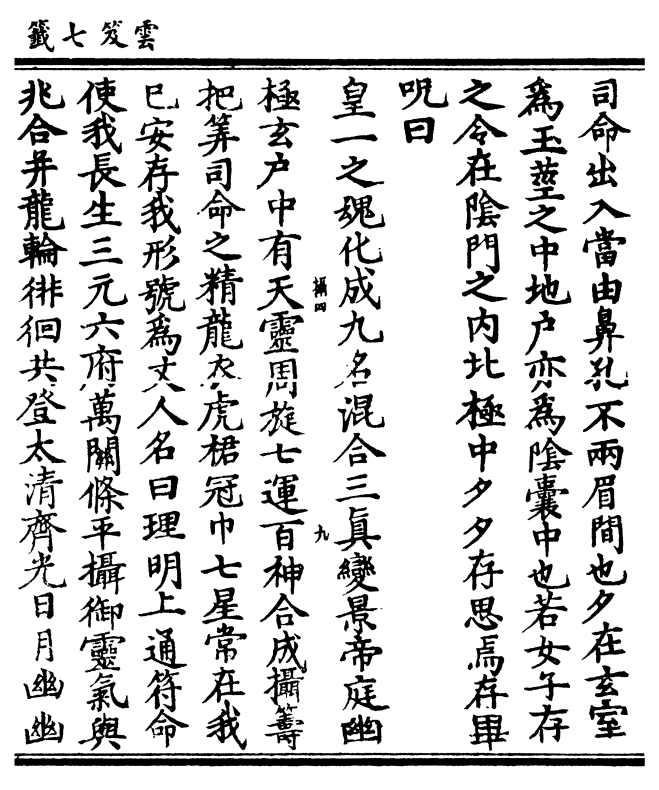 雲笈七籤
司命出入當由鼻孔不兩眉間也夕在玄室
爲玉莖之中地户亦爲陰囊中也若女子存
之令在陰門之内北極中夕夕存思焉存畢
呪曰
皇一之魂化成九名混合三眞變景帝庭幽
極玄户中有天靈周旋七運百神合成攝籌
把筭司命之精龍衣虎裙冠巾七星常在我
已安存我形號爲丈人名曰理明上通符命
使我長生三元六府萬關條平攝御靈氣與
兆合并龍輪徘徊共登太清齊光日月幽幽
攝四
九